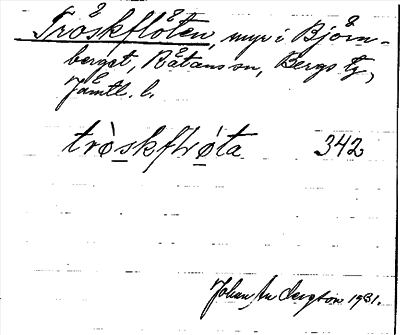 Tröskflöten, myr i Björn-
berget, Rätans sn, Bergs tg,
Jämtl. l.
tròskflɷta 342
Johan Anderzson 1931.